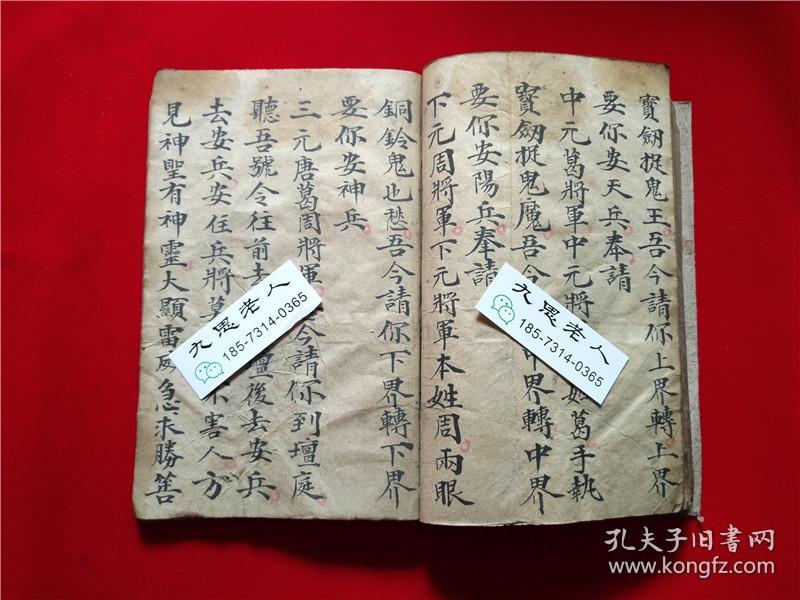 寶劍捉鬼王吾今請你上界轉上界
要你安天兵奉請
中元葛將軍中元將葛手執
寶劍捉鬼魔吾今中界轉中界
要你安陽兵奉請
下元周將軍下元將軍本姓周兩眼
銅鈴鬼也愁吾今請你下界轉下界
要你安神兵
三元唐葛周將軍今請你到壇庭
聽吾號令往前去壇後去安兵
去安兵安住兵將莫不害人方
見神聖有神靈大顯雷威急求勝筶
九思老人
185-7314-0365
九思老人
185-7314-0365
孔夫子旧书网
www.kongfz.com